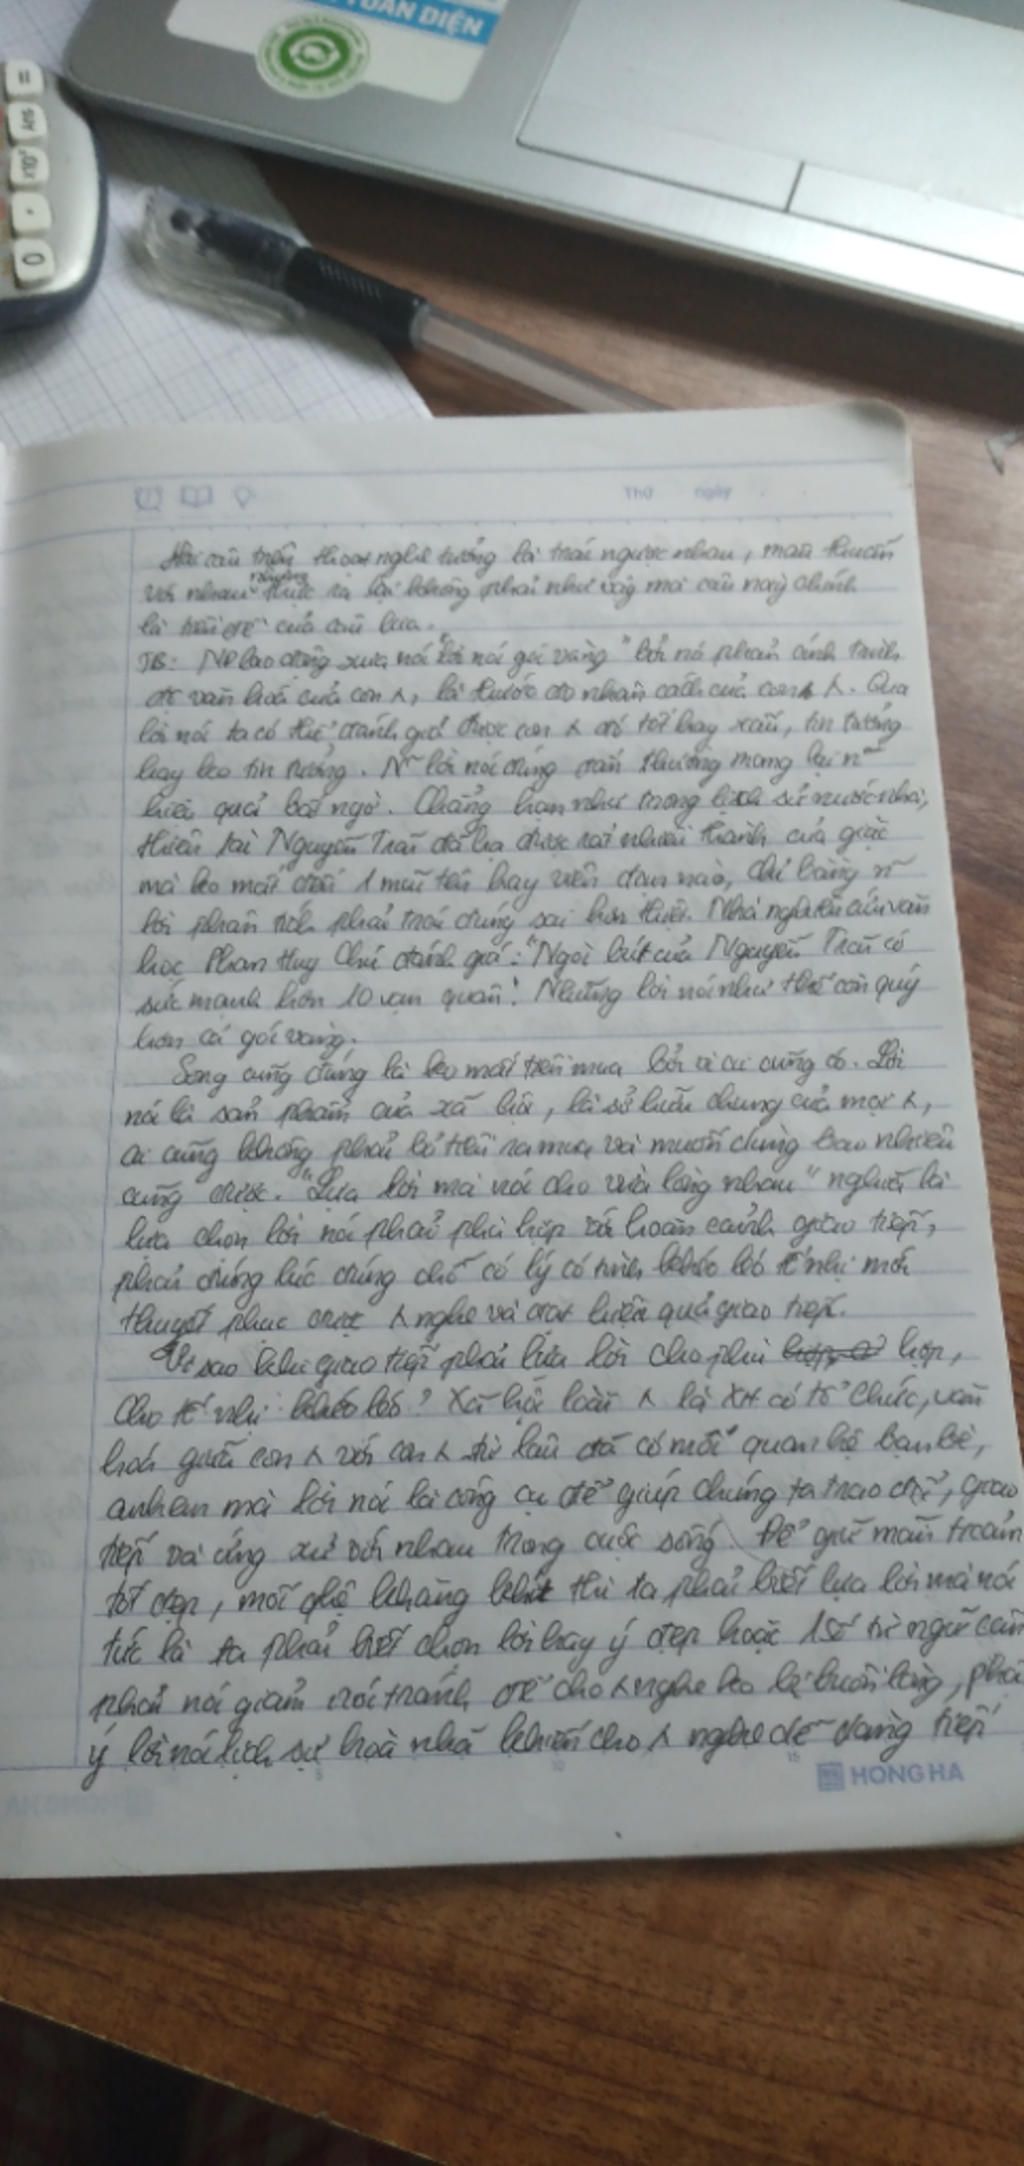 TOÀN DIỆN
=
Ans
x10ˣ
.
0
Thứ ngày
Hai câu trên thoạt nghe tưởng là trái ngược nhau, mâu thuẫn
với nhau nhưng thực ra lại không phải như vậy mà câu này chính
là của câu kia.
TB: lao động xưa nói "lời nói gói vàng" bởi nó phản ánh trình
độ văn hoá của con λ, là thước đo nhân cách của con λ. Qua
lời nói ta có thể đánh giá được con λ đó tốt hay xấu, tin tưởng
hay ko tin tưởng. N~ lời nói đúng đắn thường mang lại n~
hiệu quả bất ngờ. Chẳng hạn như trong lịch sử nước nhà,
thiên tài Nguyễn Trãi đã hạ được rất nhiều thành của giặc
mà ko mất đến 1 mũi tên hay viên đạn nào, chỉ bằng n~
lời phân tích phải trái đúng sai hơn thiệt. Nhà nghiên cứu văn
học Phan Huy Chú đánh giá: "Ngòi bút của Nguyễn Trãi có
sức mạnh hơn 10 vạn quân". Những lời nói như thế còn quý
hơn cả gói vàng.
Song cũng đúng là ko mất tiền mua bởi vì ai cũng có. Lời
nói là sản phẩm của xã hội, là sở hữu chung của mọi λ,
ai cũng không phải bỏ tiền ra mua và muốn dùng bao nhiêu
cũng được. "Lựa lời mà nói cho vừa lòng nhau" nghĩa là
lựa chọn lời nói phải phù hợp với hoàn cảnh giao tiếp,
phải đúng lúc đúng chỗ có lý có tình khéo léo tế nhị mới
thuyết phục được λ nghe và đạt hiệu quả giao tiếp.
Vì sao khi giao tiếp phải lựa lời cho phù hợp,
cho tế nhị khéo léo? Xã hội loài λ là XH có tổ chức, văn
hoá giữa con λ với con λ từ lâu đã có mối quan hệ bạn bè,
anh em mà lời nói là công cụ để giúp chúng ta trao đổi, giao
tiếp và ứng xử với nhau trong cuộc sống. Để giữ toàn
tốt đẹp, mối qhệ khăng khít thì ta phải biết lựa lời mà nói
tức là ta phải biết chọn lời hay ý đẹp hoặc 1 số từ ngữ cần
phải nói giảm nói tránh để cho λ nghe ko bị buồn lòng, phải
ý lời nói lịch sự hoà nhã khiến cho λ nghe dễ dàng tiếp
5 10 15
HONG HA